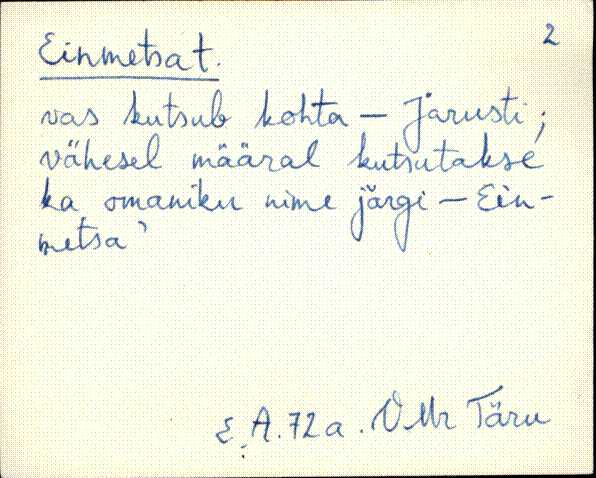 2
Einmetsa t.
vas kutsub kohta — Jarusti;
vähesel määral kutsutakse
ka omaniku nime järgi — Ein-
metsa'
E.A. 72 a. VMr Täru